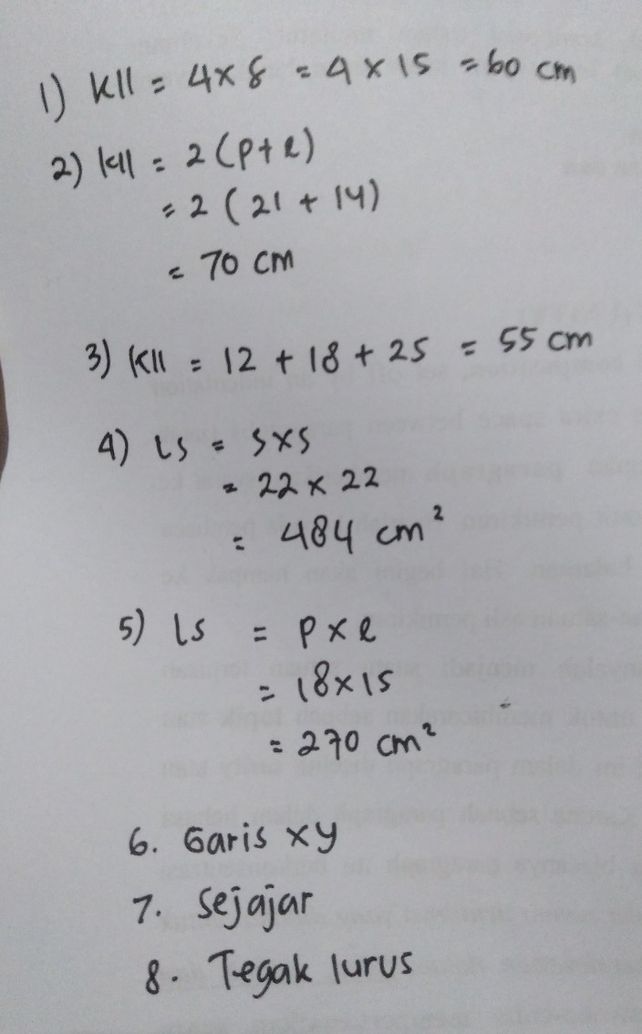 1) Kll = 4 x 8 = 4 x 15 = 60 cm
2) kll = 2 (p + l)
= 2 ( 21 + 14)
= 70 cm
3) Kll = 12 + 18 + 25 = 55 cm
4) Ls = s x s
= 22 x 22
= 484 cm²
5) Ls = p x l
= 18 x 15
= 270 cm²
6. Garis xy
7. Sejajar
8. Tegak lurus